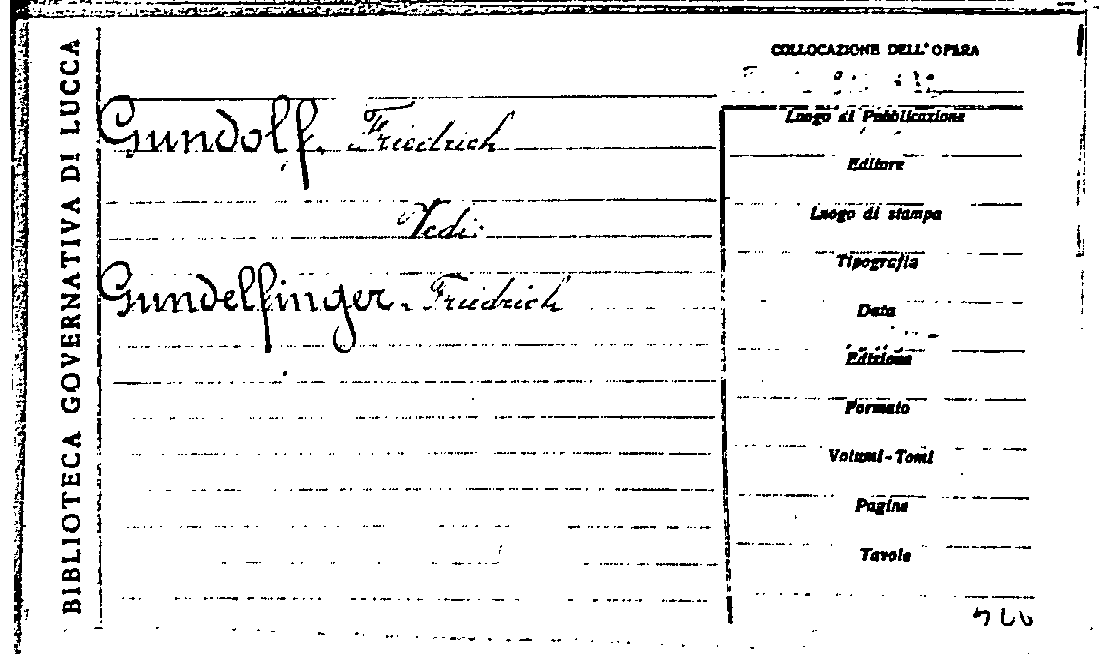 BIBLIOTECA GOVERNATIVA DI LUCCA
Gundolf, Friedrich
Vedi:
Gundelfinger, Friedrich
COLLOCAZIONE DELL'OPERA
Luogo di Pubblicazione
Editore
Luogo di stampa
Tipografia
Data
Edizione
Formato
Volumi-Tomi
Pagine
Tavole